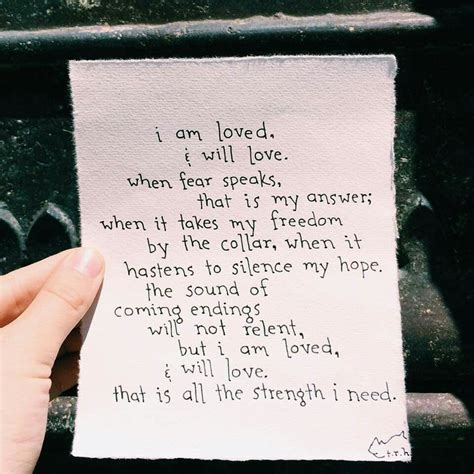 i am loved,
& will love.
when fear speaks,
that is my answer;
when it takes my freedom
by the collar, when it
hastens to silence my hope.
the sound of
coming endings
will not relent,
but i am loved,
& will love.
that is all the strength i need.
t.r.h.